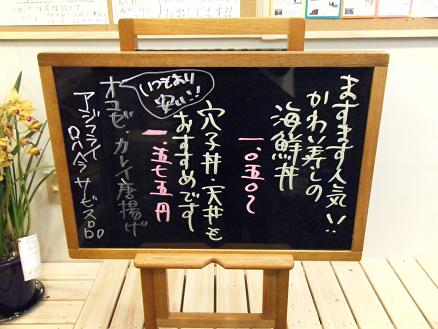 ますます人気!!
かわい寿しの
海鮮丼
一、〇五〇〜
穴子丼・天丼も
おすすめです
一、五七五円
いつもより
安い!!
オコゼ・カレイ唐揚げ
アジフライ